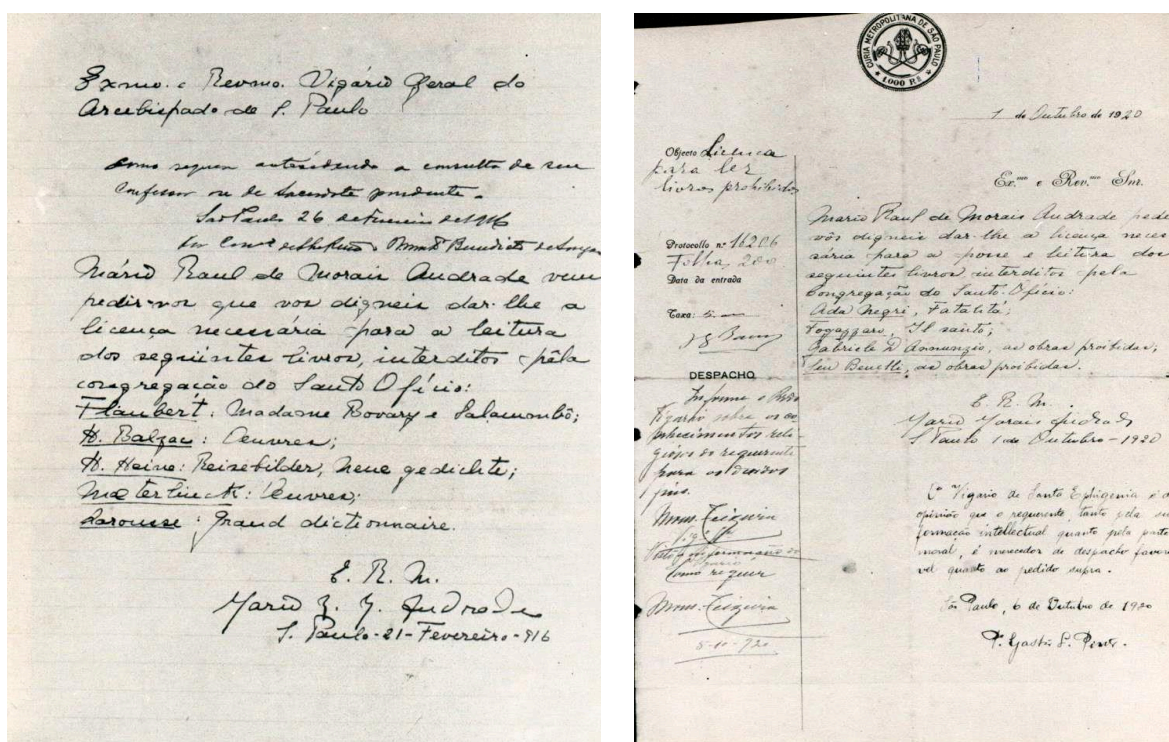 Exmo. e Revmo. Vigário Geral do
Arcebispado de S. Paulo
como requer antecedendo a consulta de seu
Confessor ou de Sacerdote prudente.
São Paulo 26 de Fevereiro de 1916
Mário Raul de Morais Andrade vem
pedir-vos que vos digneis dar-lhe a
licença necessária para a leitura
dos seguintes livros, interditos pela
congregação do Santo Ofício:
Flaubert: Madame Bovary e Salammbô;
H. Balzac: Oeuvres;
H. Heine: Reisebilder, neue gedichte;
Maeterlinck: Oeuvres;
Larousse: Grand dictionnaire.
E. R. M.
Mario R. M. Andrade
S. Paulo-21-Fevereiro-916
CURIA METROPOLITANA DE SÃO PAULO
1.000 RS
1 de Outubro de 1920
Objecto Licença
para ler
livros prohibidos
Protocollo n.º 16206
Folha, 200
Data da entrada
Taxa: 5
DESPACHO
Informe o Revdo
Vigario sobre os co-
nhecimentos reli-
giosos do requerente
para os devidos
fins.
Mons. Teixeira
Vista a informação do
Vigario
como requer
Mons. Teixeira
Ex.mo e Rev.mo Snr.
Mario Raul de Morais Andrade pede
vós digneis dar-lhe a licença neces
sária para a posse e leitura dos
seguintes livros interditos pela
Congregação do Santo-Ofício:
Ada Negri, Fatalità;
Fogazzaro, Il santo;
Gabriele D'Annunzio, as obras proibidas;
Sem Benelli, as obras proibidas.
E. R. M.
Mario Morais Andrade
S. Paulo 1 de Outubro-1920
O Vigario de Santa Ephigenia é d
opinião que o requerente, tanto pela su
formação intellectual quanto pela parte
moral, é merecedor de despacho favora
vel quanto ao pedido supra.
São Paulo, 6 de Outubro de 1920